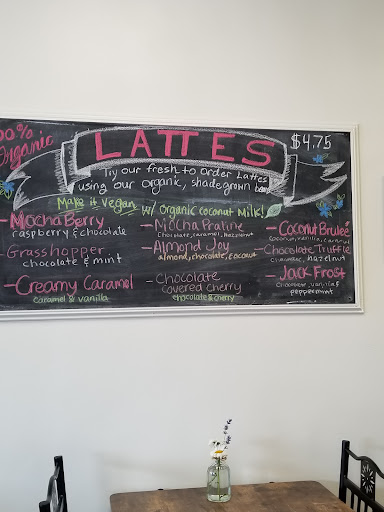 00% Organic
LATTES
$4.75
Try our fresh to order Lattes
using our organic, shade grown
Make it Vegan w/ Organic coconut Milk!
-Mocha Berry
raspberry & chocolate
-Grasshopper
chocolate & mint
-Creamy Caramel
caramel & vanilla
-Mocha Praline
chocolate, caramel, hazelnut
-Almond Joy
almond, chocolate, coconut
-Chocolate
covered cherry
chocolate & cherry
-Coconut Brulee
coconut, vanilla, caramel
-Chocolate Truffle
chocolate, hazelnut
-Jack Frost
chocolate, vanilla &
peppermint